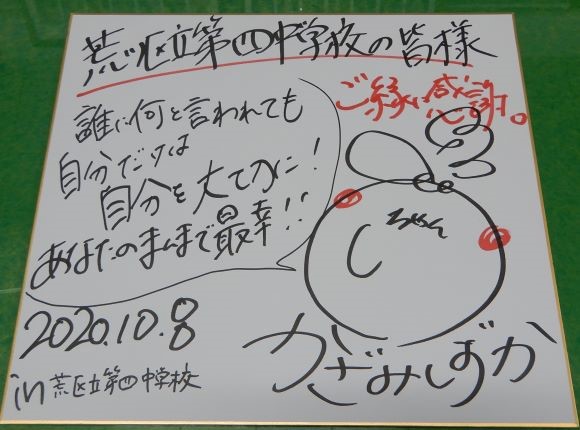 荒川区立第四中学校の皆様
ご縁に感謝。
誰に何と言われても
自分だけは
自分を大切に!
あなたのまんまで最幸!!
しちゃん
かざみしずか
2020.10.8
in 荒区立第四中学校